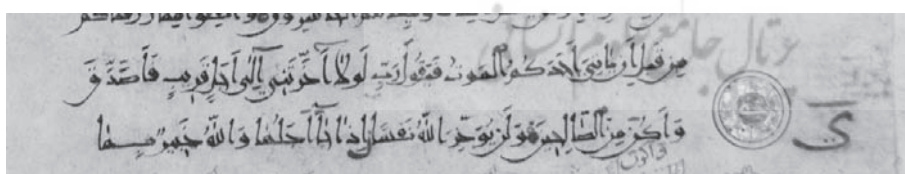 وانفقوا مما رزقنكم
من قبل أن يأتي أحدكم الموت فيقول رب لولا أخرتني إلى أجل قريب فأصدق
وأكن من الصالحين ولن يؤخر الله نفسا إذا جا أجلها والله خبير بما
ی
واكون